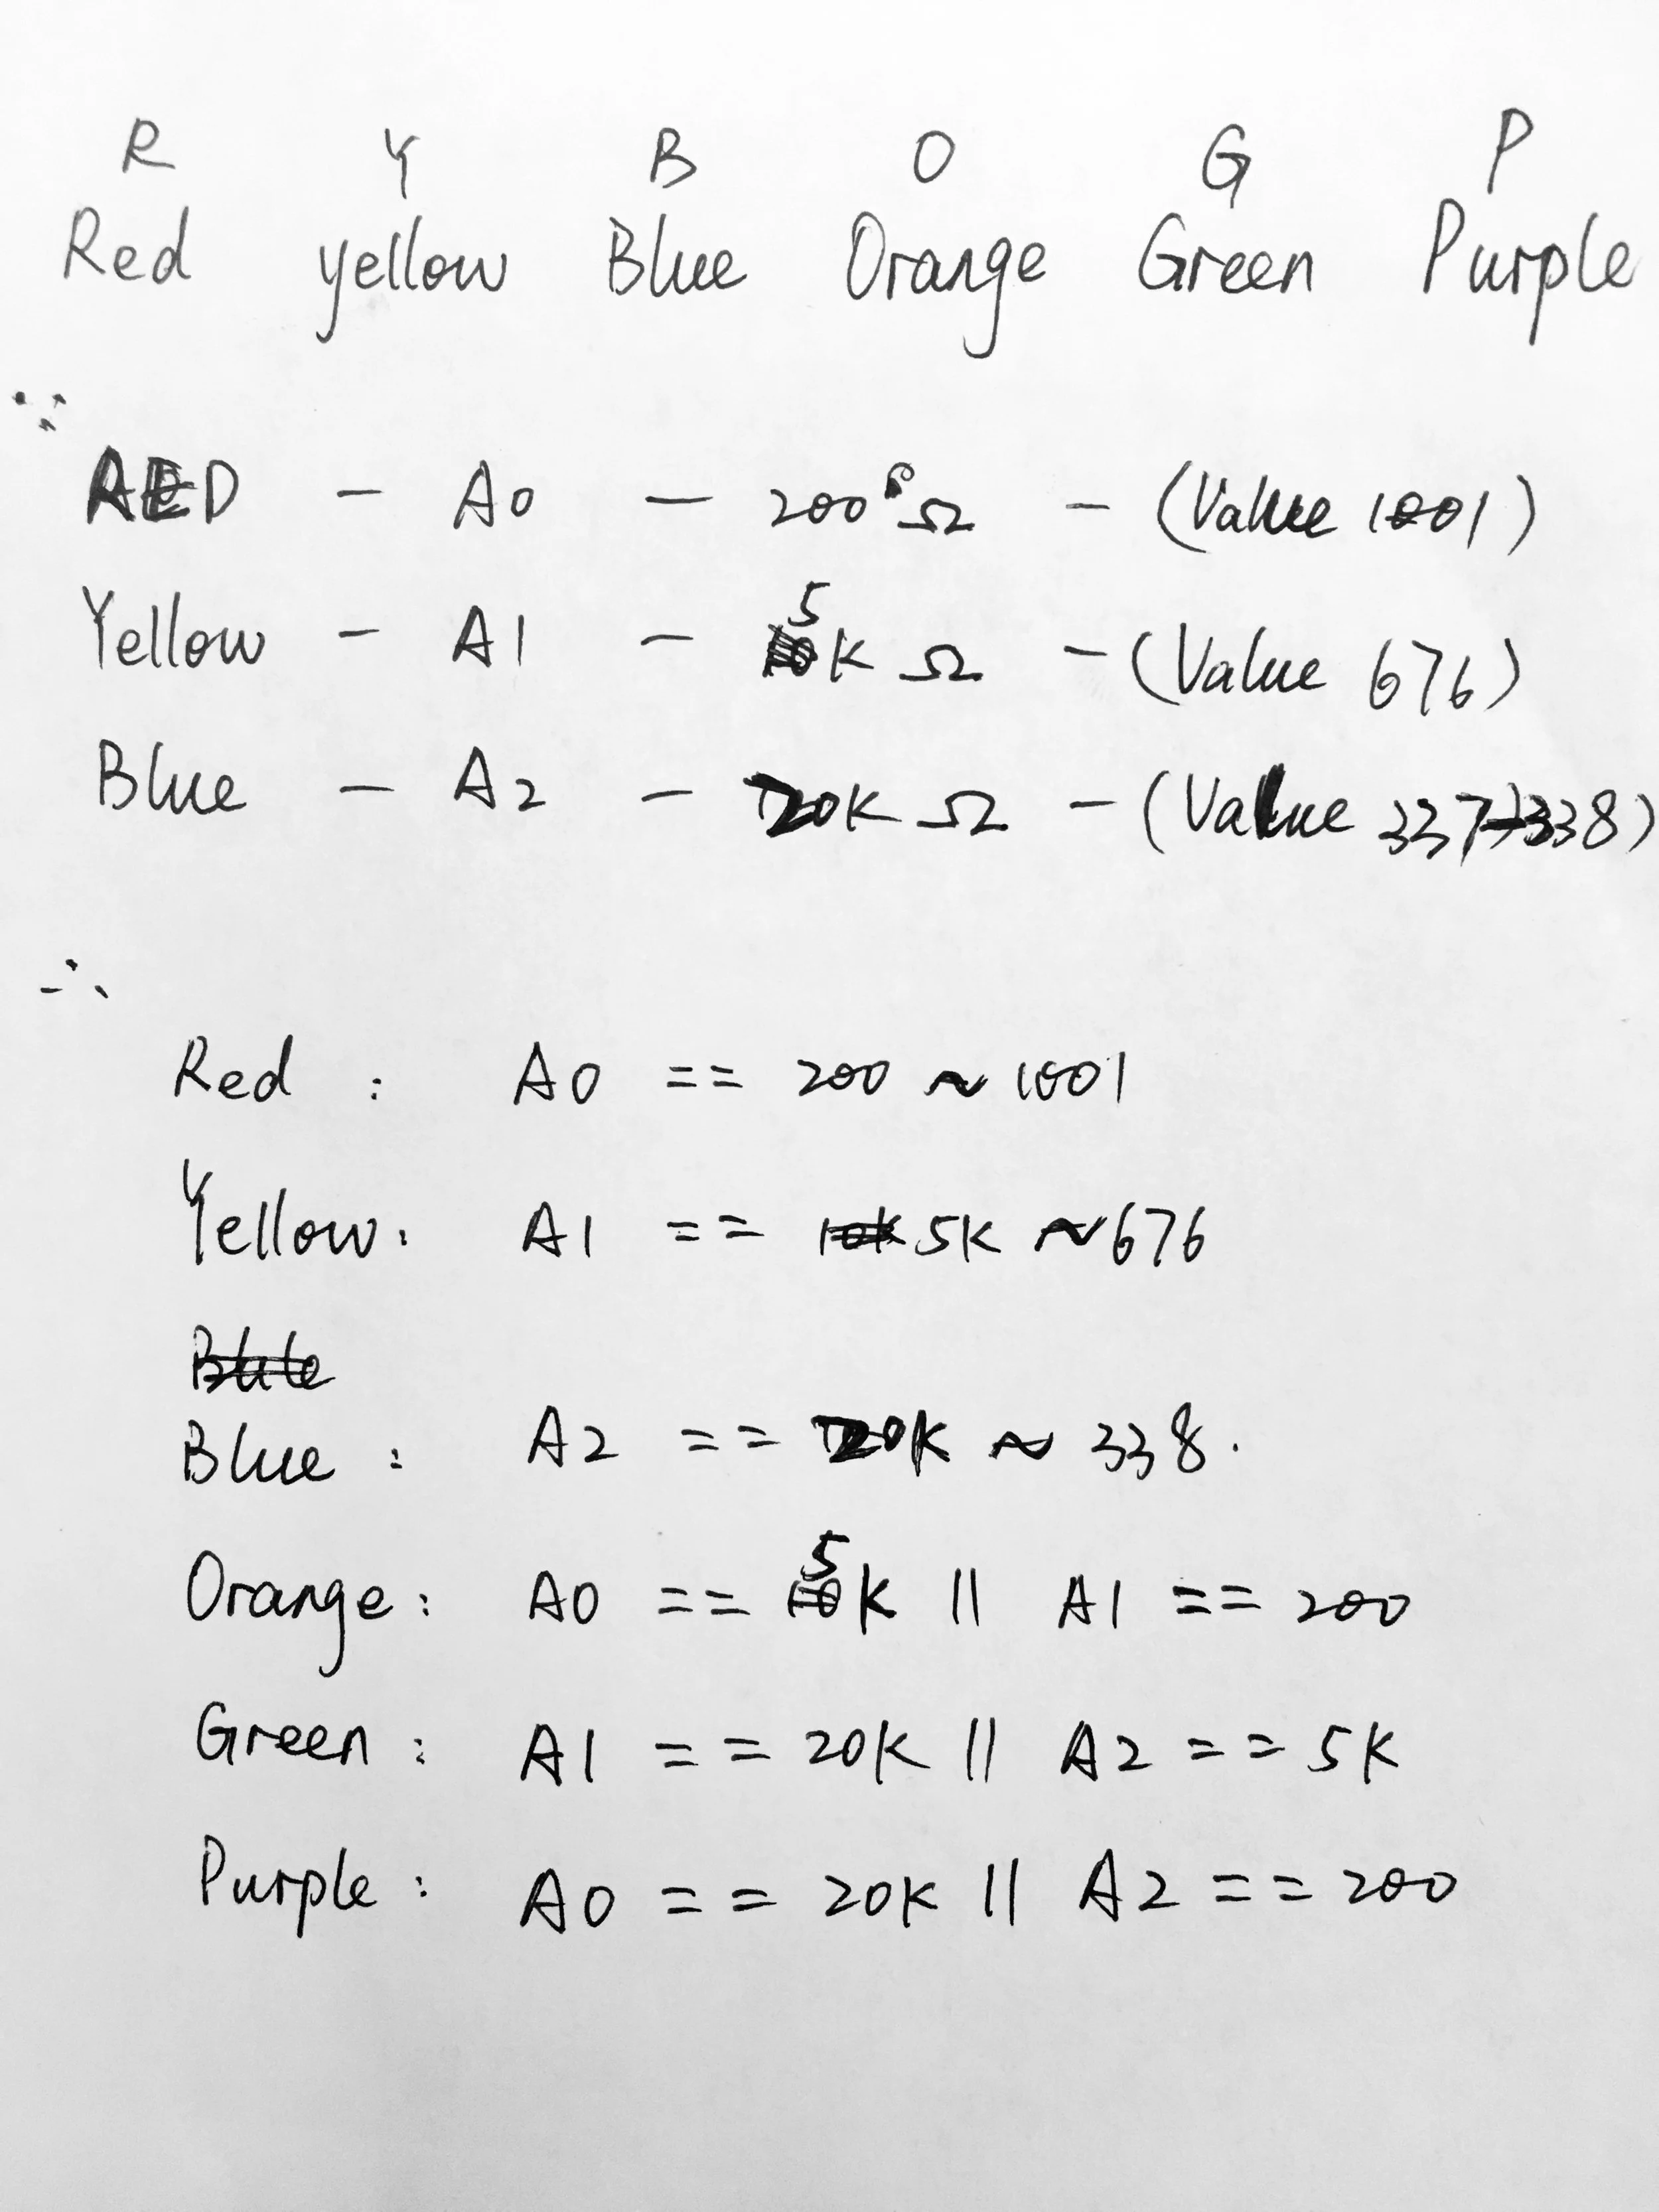 R Y B O G P
Red yellow Blue Orange Green Purple
∵
RED — A0 — 200 Ω — (Value 1001)
Yellow — A1 — 5K Ω — (Value 676)
Blue — A2 — 20K Ω — (Value 337-338)
∴
Red : A0 == 200 ≈ 1001
Yellow: A1 == 10K 5K ≈ 676
Blue
Blue : A2 == 20K ≈ 338.
Orange : A0 == 5K || A1 == 200
Green : A1 == 20K || A2 == 5K
Purple : A0 == 20K || A2 == 200